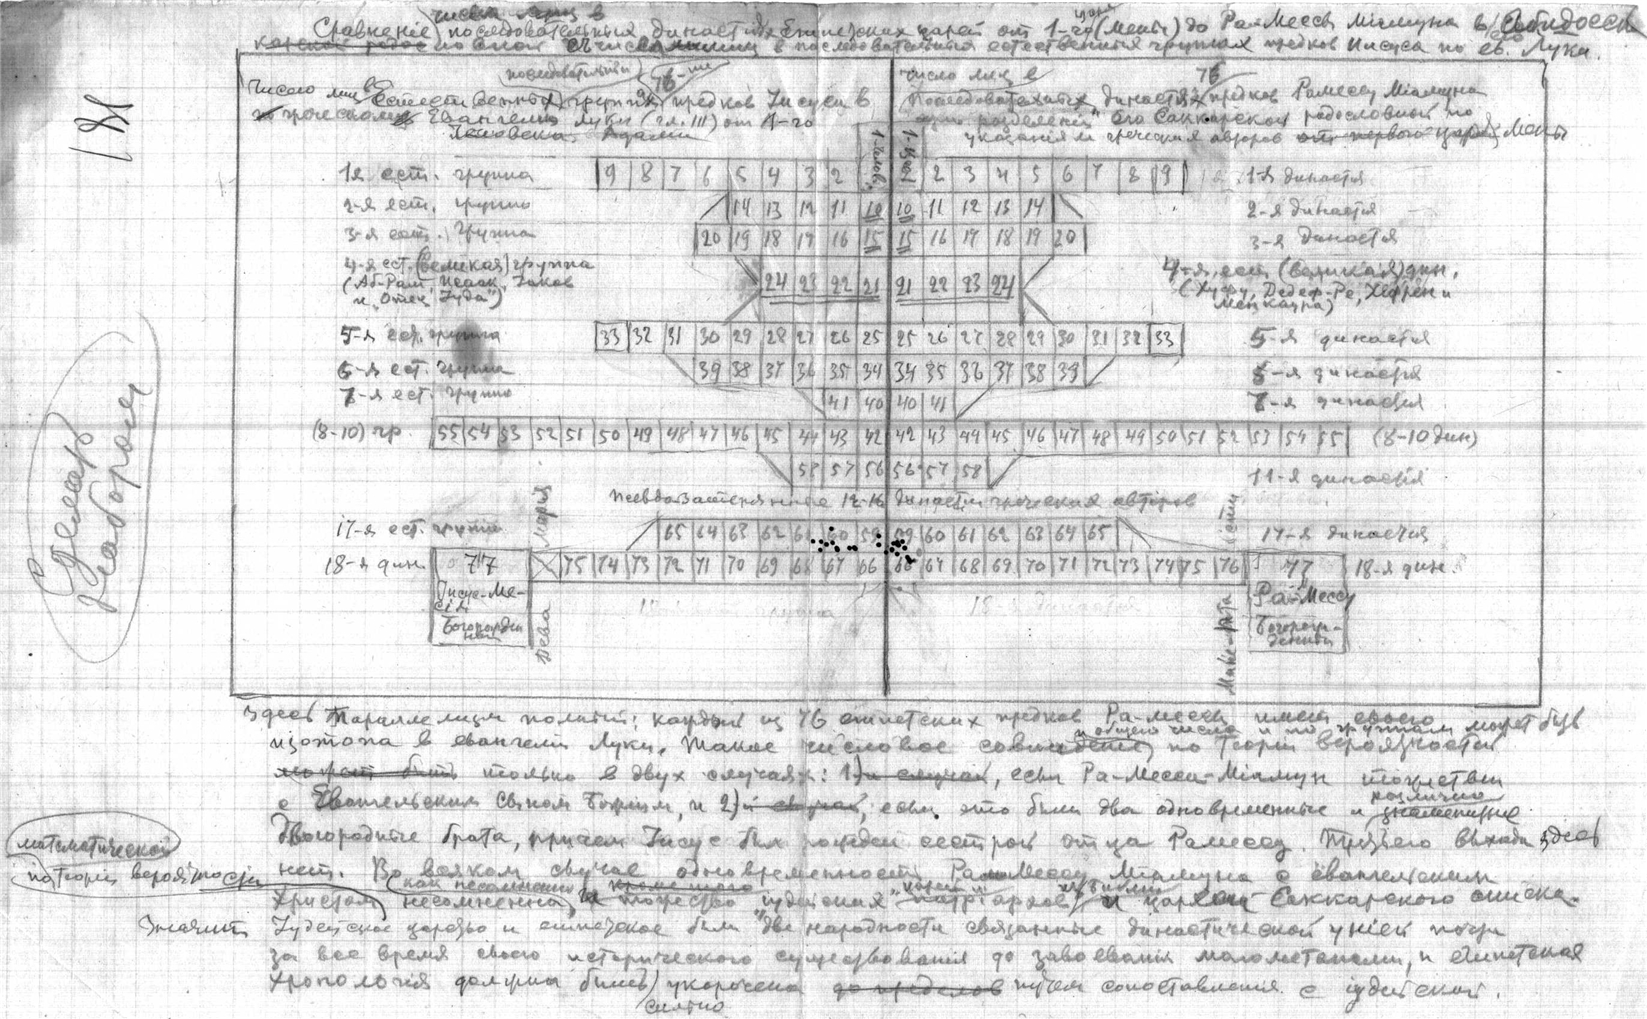 числа лиц в
Сравнение последовательных династиях Египетских царей от 1-го царя (Мены) до Ра-Мессы Миамуна в Абидосск
с числами лиц в последовательных естественных группах предков Иисуса по ев. Луки.
181
Сделать разборчи
Число лиц в последовательных 76-ти
естественных группах предков Иисуса в
Евангелии Луки (гл. III) от 1-го
человека Адама
число лиц в 76
последовательных династиях предков Рамессу Миамуна
его Саккарской родословной по
указаниям греческих авторов от первого царя Мены
1 челов. 1-й царь
1-я ест. группа 9 8 7 6 5 4 3 2 2 3 4 5 6 7 8 9 1-я династія
2-я ест. группа 14 13 12 11 10 10 11 12 13 14 2-я династія
3-я ест. группа 20 19 18 17 16 15 15 16 17 18 19 20 3-я династія
4-я ест. (великая) группа 24 23 22 21 21 22 23 24 4-я ест. (великая) дин.
(Аб-Рам, Исаак, Іаков (Хуфу, Дедеф-Ре, Хефрен и
и "Отец Іуда") Менкаура)
5-я ест. группа 33 32 31 30 29 28 27 26 25 25 26 27 28 29 30 31 32 33 5-я династія
6-я ест. группа 39 38 37 36 35 34 34 35 36 37 38 39 6-я династія
7-я ест. группа 41 40 40 41 7-я династія
(8-10) гр. 55 54 53 52 51 50 49 48 47 46 45 44 43 42 42 43 44 45 46 47 48 49 50 51 52 53 54 55 (8-10 дин)
58 57 56 56 57 58 11-я династія
12-16 династии греческих авторов
17-я ест. группа 65 64 63 62 61 60 59 59 60 61 62 63 64 65 17-я династія
18-я дин. 77 75 74 73 72 71 70 69 68 67 66 66 67 68 69 70 71 72 73 74 75 76 77 18-я дин.
Дева Мария
Иисус-Мессия
Богорожденный
Ра-Мессу
Богорожденный
Здесь параллелизм полный: каждый из 76 египетских предков Ра-Мессы имеет своего
изотопа в евангелии Луки. Такое числовое совпадение и общего числа и по группам может быть по теории вероятности
только в двух случаях: 1) если Ра-Месса-Миамун тождествен
с Евангельским сыном Божиим, и 2) если это были два одновременные и различно
двоюродные брата, причем Іисус был рожден сестрой отца Рамессу. Третьего выхода здесь
нет. Во всяком случае одновременность Рамессу Миамуна с евангельским
математической
по теории вероятности
Христом несомненна, как несомненно тожество іудейских "царей" с царями Саккарского списка.
Значит Іудейское царство и египетское были "две народности связанные династической уніей почти
за все время своего исторического существованія до завоеванія магометанами, и египетская
хронологія должна быть сильно укорочена путем сопоставленія с іудейской.